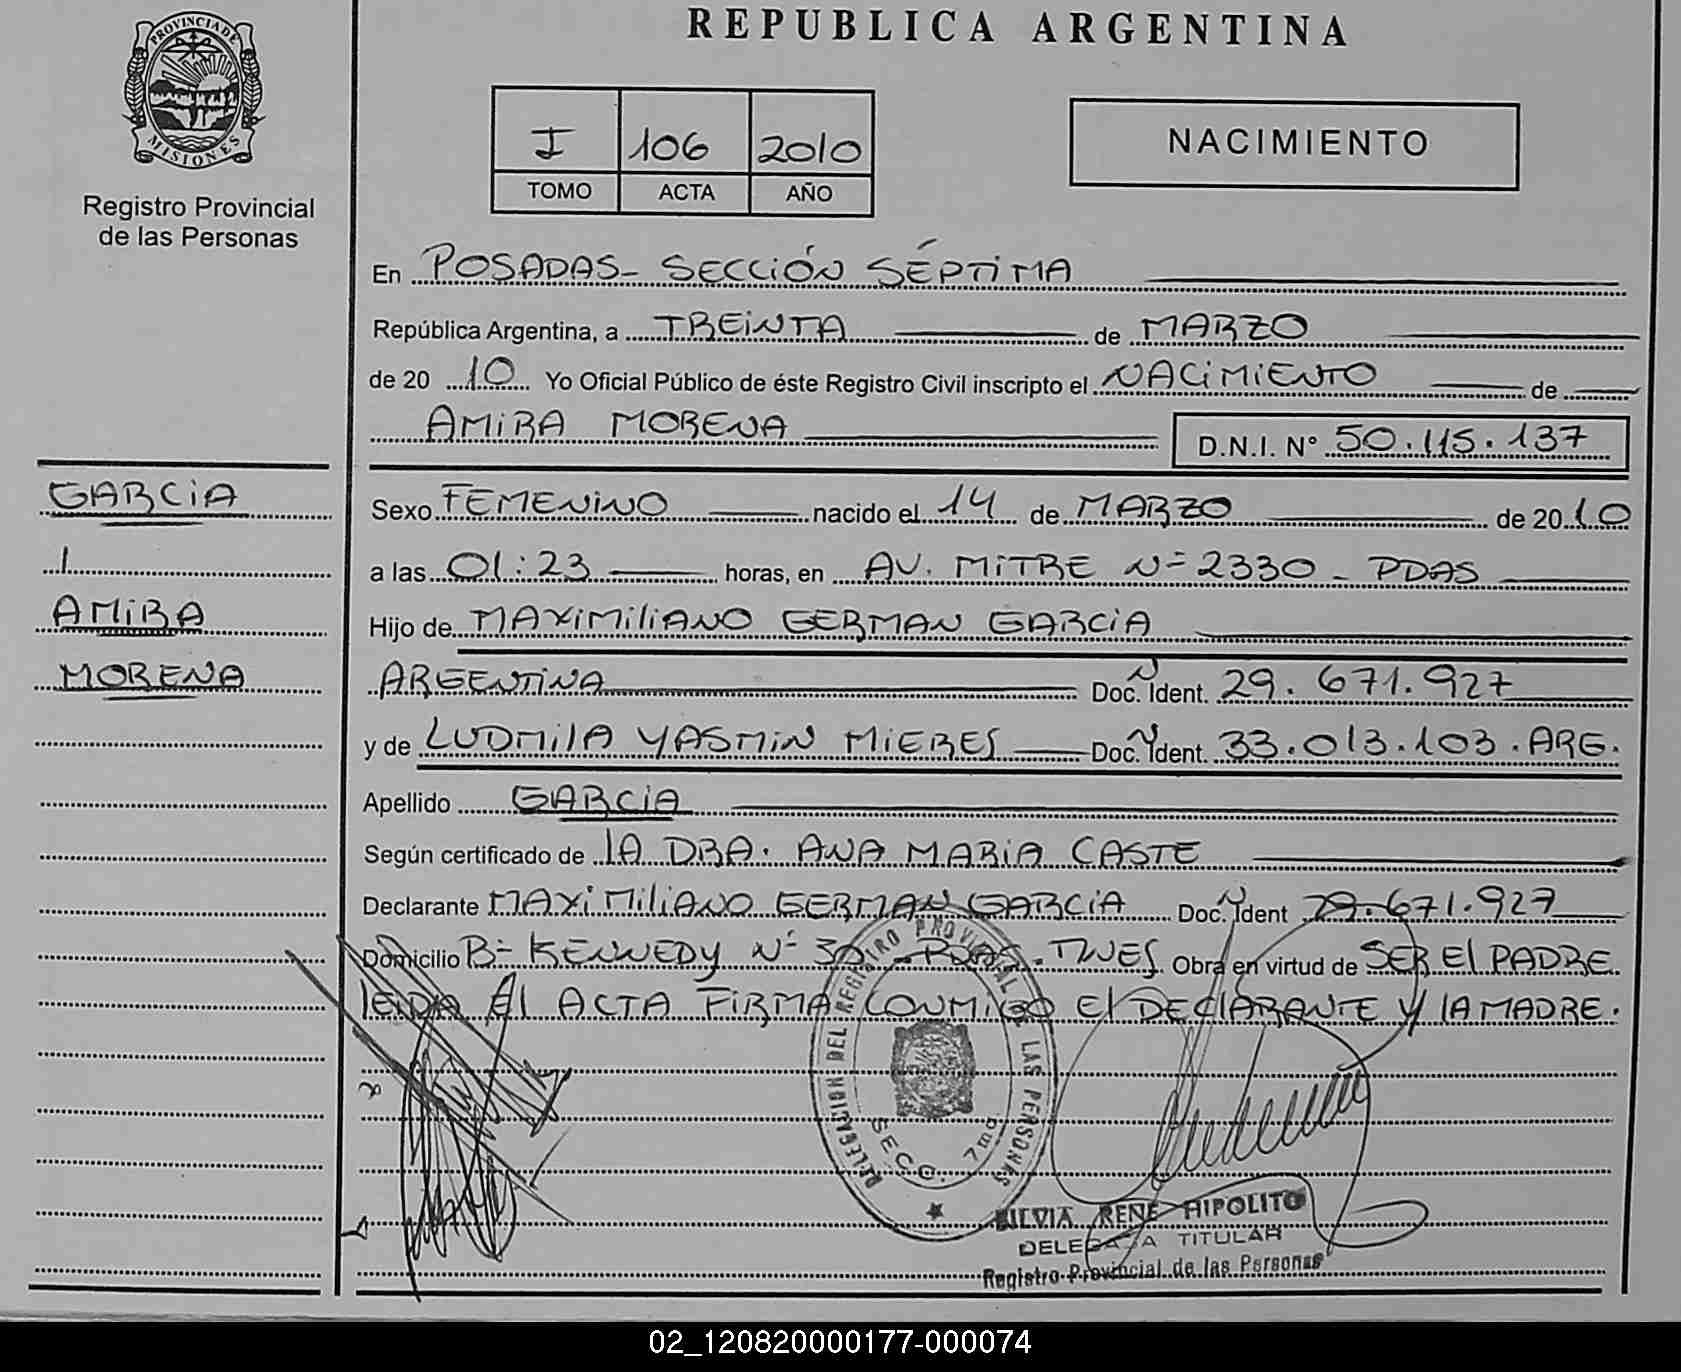 REPUBLICA ARGENTINA
PROVINCIA DE
MISIONES
Registro Provincial
de las Personas
I 106 2010
TOMO ACTA AÑO
NACIMIENTO
En POSADAS- SECCIÓN SÉPTIMA
República Argentina, a TREINTA de MARZO
de 20 10 Yo Oficial Público de éste Registro Civil inscripto el NACIMIENTO de
AMIRA MORENA D.N.I. N° 50.115.137
GARCIA
1
AMIRA
MORENA
Sexo FEMENINO nacido el 14 de MARZO de 20 10
a las 01:23 horas, en AV. MITRE Nº 2330 - PDAS
Hijo de MAXIMILIANO GERMAN GARCIA
ARGENTINA Doc. Ident. 29.671.927
y de LUDMILA YASMIN MIERES Doc. Ident. 33.013.103.ARG.
Apellido GARCIA
Según certificado de LA DRA. ANA MARIA CASTE
Declarante MAXIMILIANO GERMAN GARCIA Doc. Ident 29.671.927
Domicilio Bº KENNEDY Nº Obra en virtud de SER EL PADRE.
LEIDA EL ACTA FIRMA CONMIGO EL DECLARANTE Y LA MADRE.
DELEGACION DEL REGISTRO PROVINCIAL LAS PERSONAS
SECC. 7ma
SILVIA RENE HIPOLITO
DELEGADA TITULAR
Registro Provincial de las Personas
02_120820000177-000074